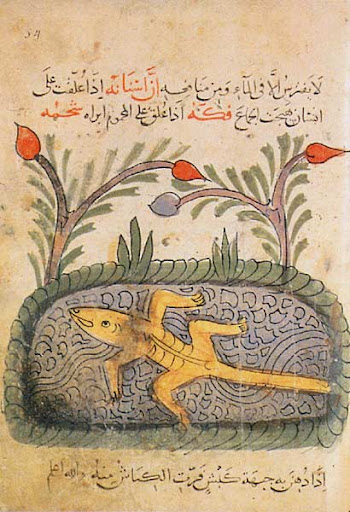 لا يفترس الا في الماء ومن منافعه ان اسنانه اذا علقت على
انسان هيجت الجماع فكه اذا علق على المحموم ابراه شحمه
اذا دهن به جبهة كبش فرت الكباش منه والله اعلم